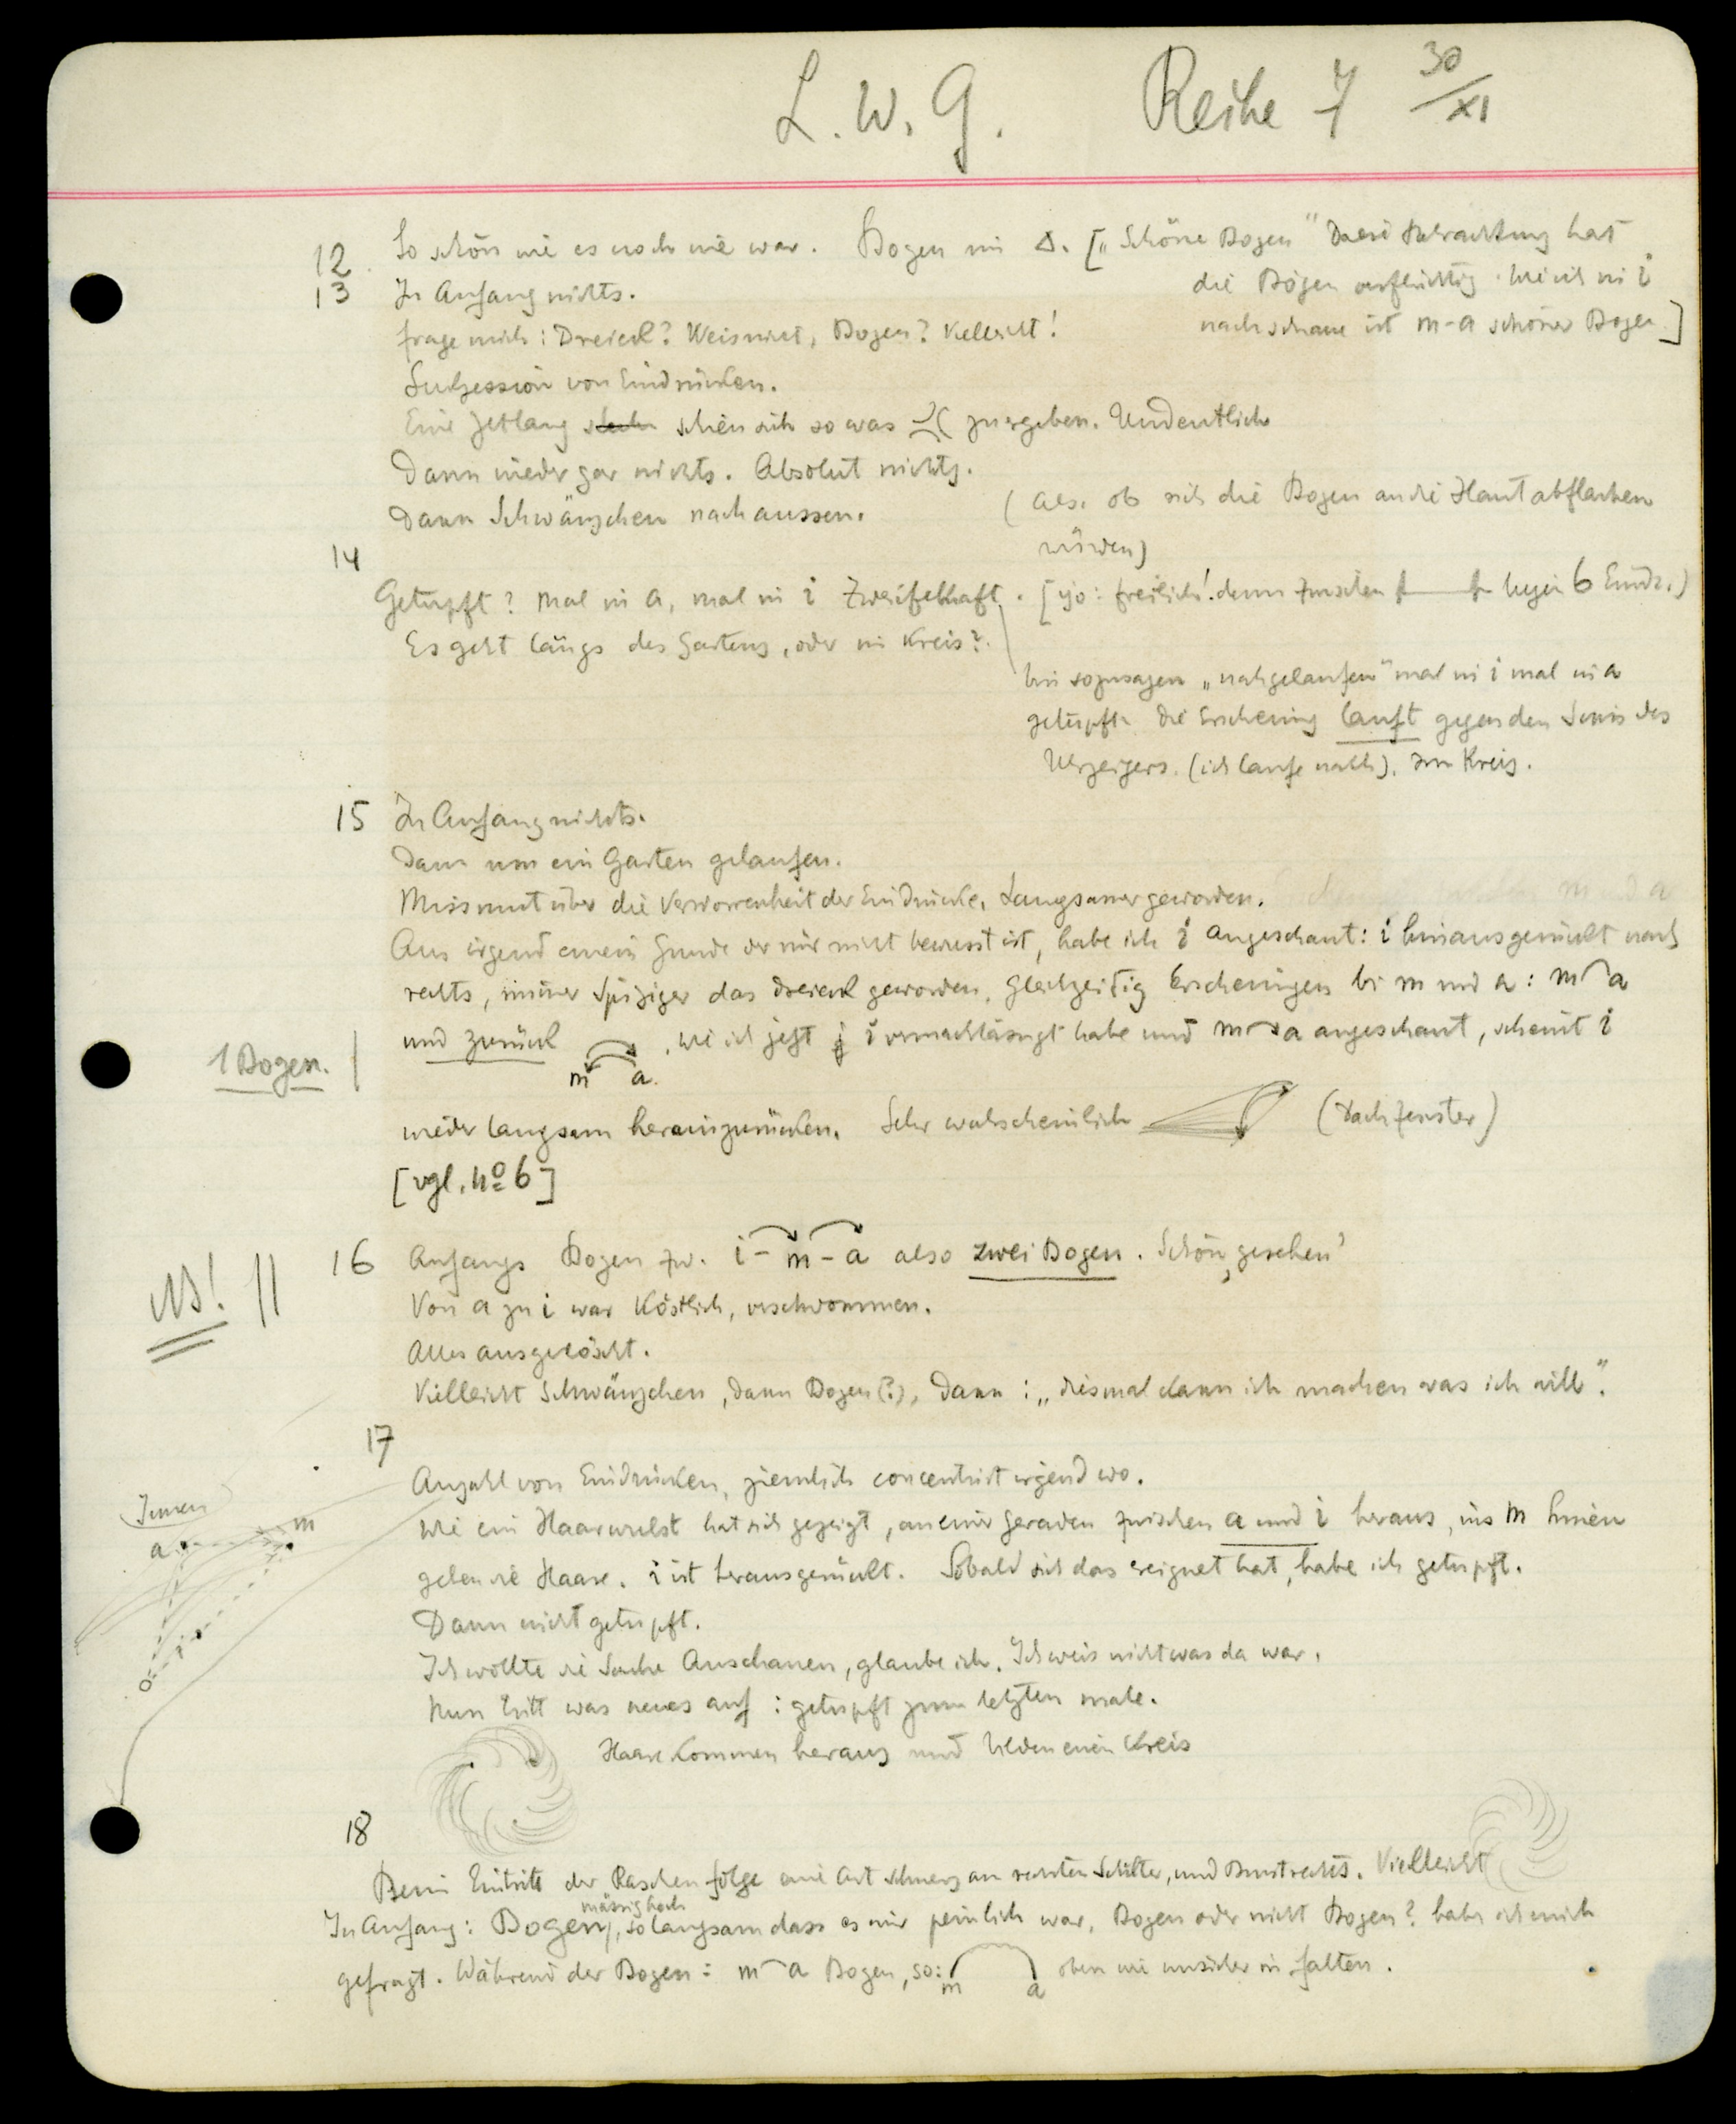 L. W. G. Reihe 7 30/XI
12. So schön wie es noch nie war. Bogen im Δ. [„Schöne Bogen" Diese Betrachtung hat
die Bogen verflüchtig. Wie ich in i
nachschaue ist m-a schöner Bogen]
13 In Anfang nichts.
frage mich: Dreieck? Weis nicht, Bogen? Velleicht!
Sukzession von Eindrücken.
Eine Zeitlang schien sich so was zu ergeben. Undeutlich
Dann wieder gar nichts. Absolut nichts.
Dann Schwänzchen nach aussen.
(als ob sich die Bogen an die Haut abflachen
würden)
14
Getupft? Mal in a, mal in i Zweifelhaft. [ijo: freilich! denn zwischen liegen 6 Eindr.)
Es geht längs des Gartens, oder im Kreis?
bin sozusagen „nachgelaufen" mal in i mal in a
getupft. Die Erscheinung lauft gegen den Sinn des
Uhrzeigers. (ich laufe nach). Im Kreis.
15 In Anfang nichts.
Dann um ein Garten gelaufen.
Missmut über die Verworrenheit der Eindrücke. Langsamer geworden.
Aus irgend einem Grunde der mir nicht bewusst ist, habe ich i angeschaut: i hinausgerückt nach
rechts, immer spiziger das Dreieck geworden. Gleichzeitig Erscheinungen bei m und a: m a
und zurück m a. Wie ich jetzt i vernachlässigt habe und m a angeschaut, scheint i
1 Bogen.
wieder langsam hereinzurücken. Sehr wahrscheinlich (Dachfenster)
[vgl. No 6]
NB! 16 Anfangs Bogen zw. i - m - a also zwei Bogen. Schön, gesehen
Von a zu i war Köstlich, verschwommen.
Alles ausgelöscht.
Vielleicht Schwänzchen, dann Bogen (?), Dann: „diesmal kann ich machen was ich will".
17
Anzahl von Eindrücken, ziemlich concentrirt irgend wo.
Wie ein Haarwulst hat sich gezeigt, an einer Geraden zwischen a und i heraus, ins m hinein
gehen die Haare. i ist herausgerückt. Sobald sich das ereignet hat, habe ich getupft.
Dann nicht getupft.
Ich wollte die Sache Anschauen, glaube ich. Ich weis nicht was da war.
Nun tritt was neues auf: getupft zum letzten male.
Haare kommen heraus und bilden einen Kreis
Innen
a m
i
18
Beim Eintritt der Raschen folge eine Art schmerz am rechten Schulter, und Brust rechts. Vielleicht
In Anfang: Bogen, mässig hoch, so langsam dass es mir peinlich war, Bogen oder nicht Bogen? habe ich mich
gefragt. Während der Bogen: m a Bogen, so: m a oben wie unsicher in falten.